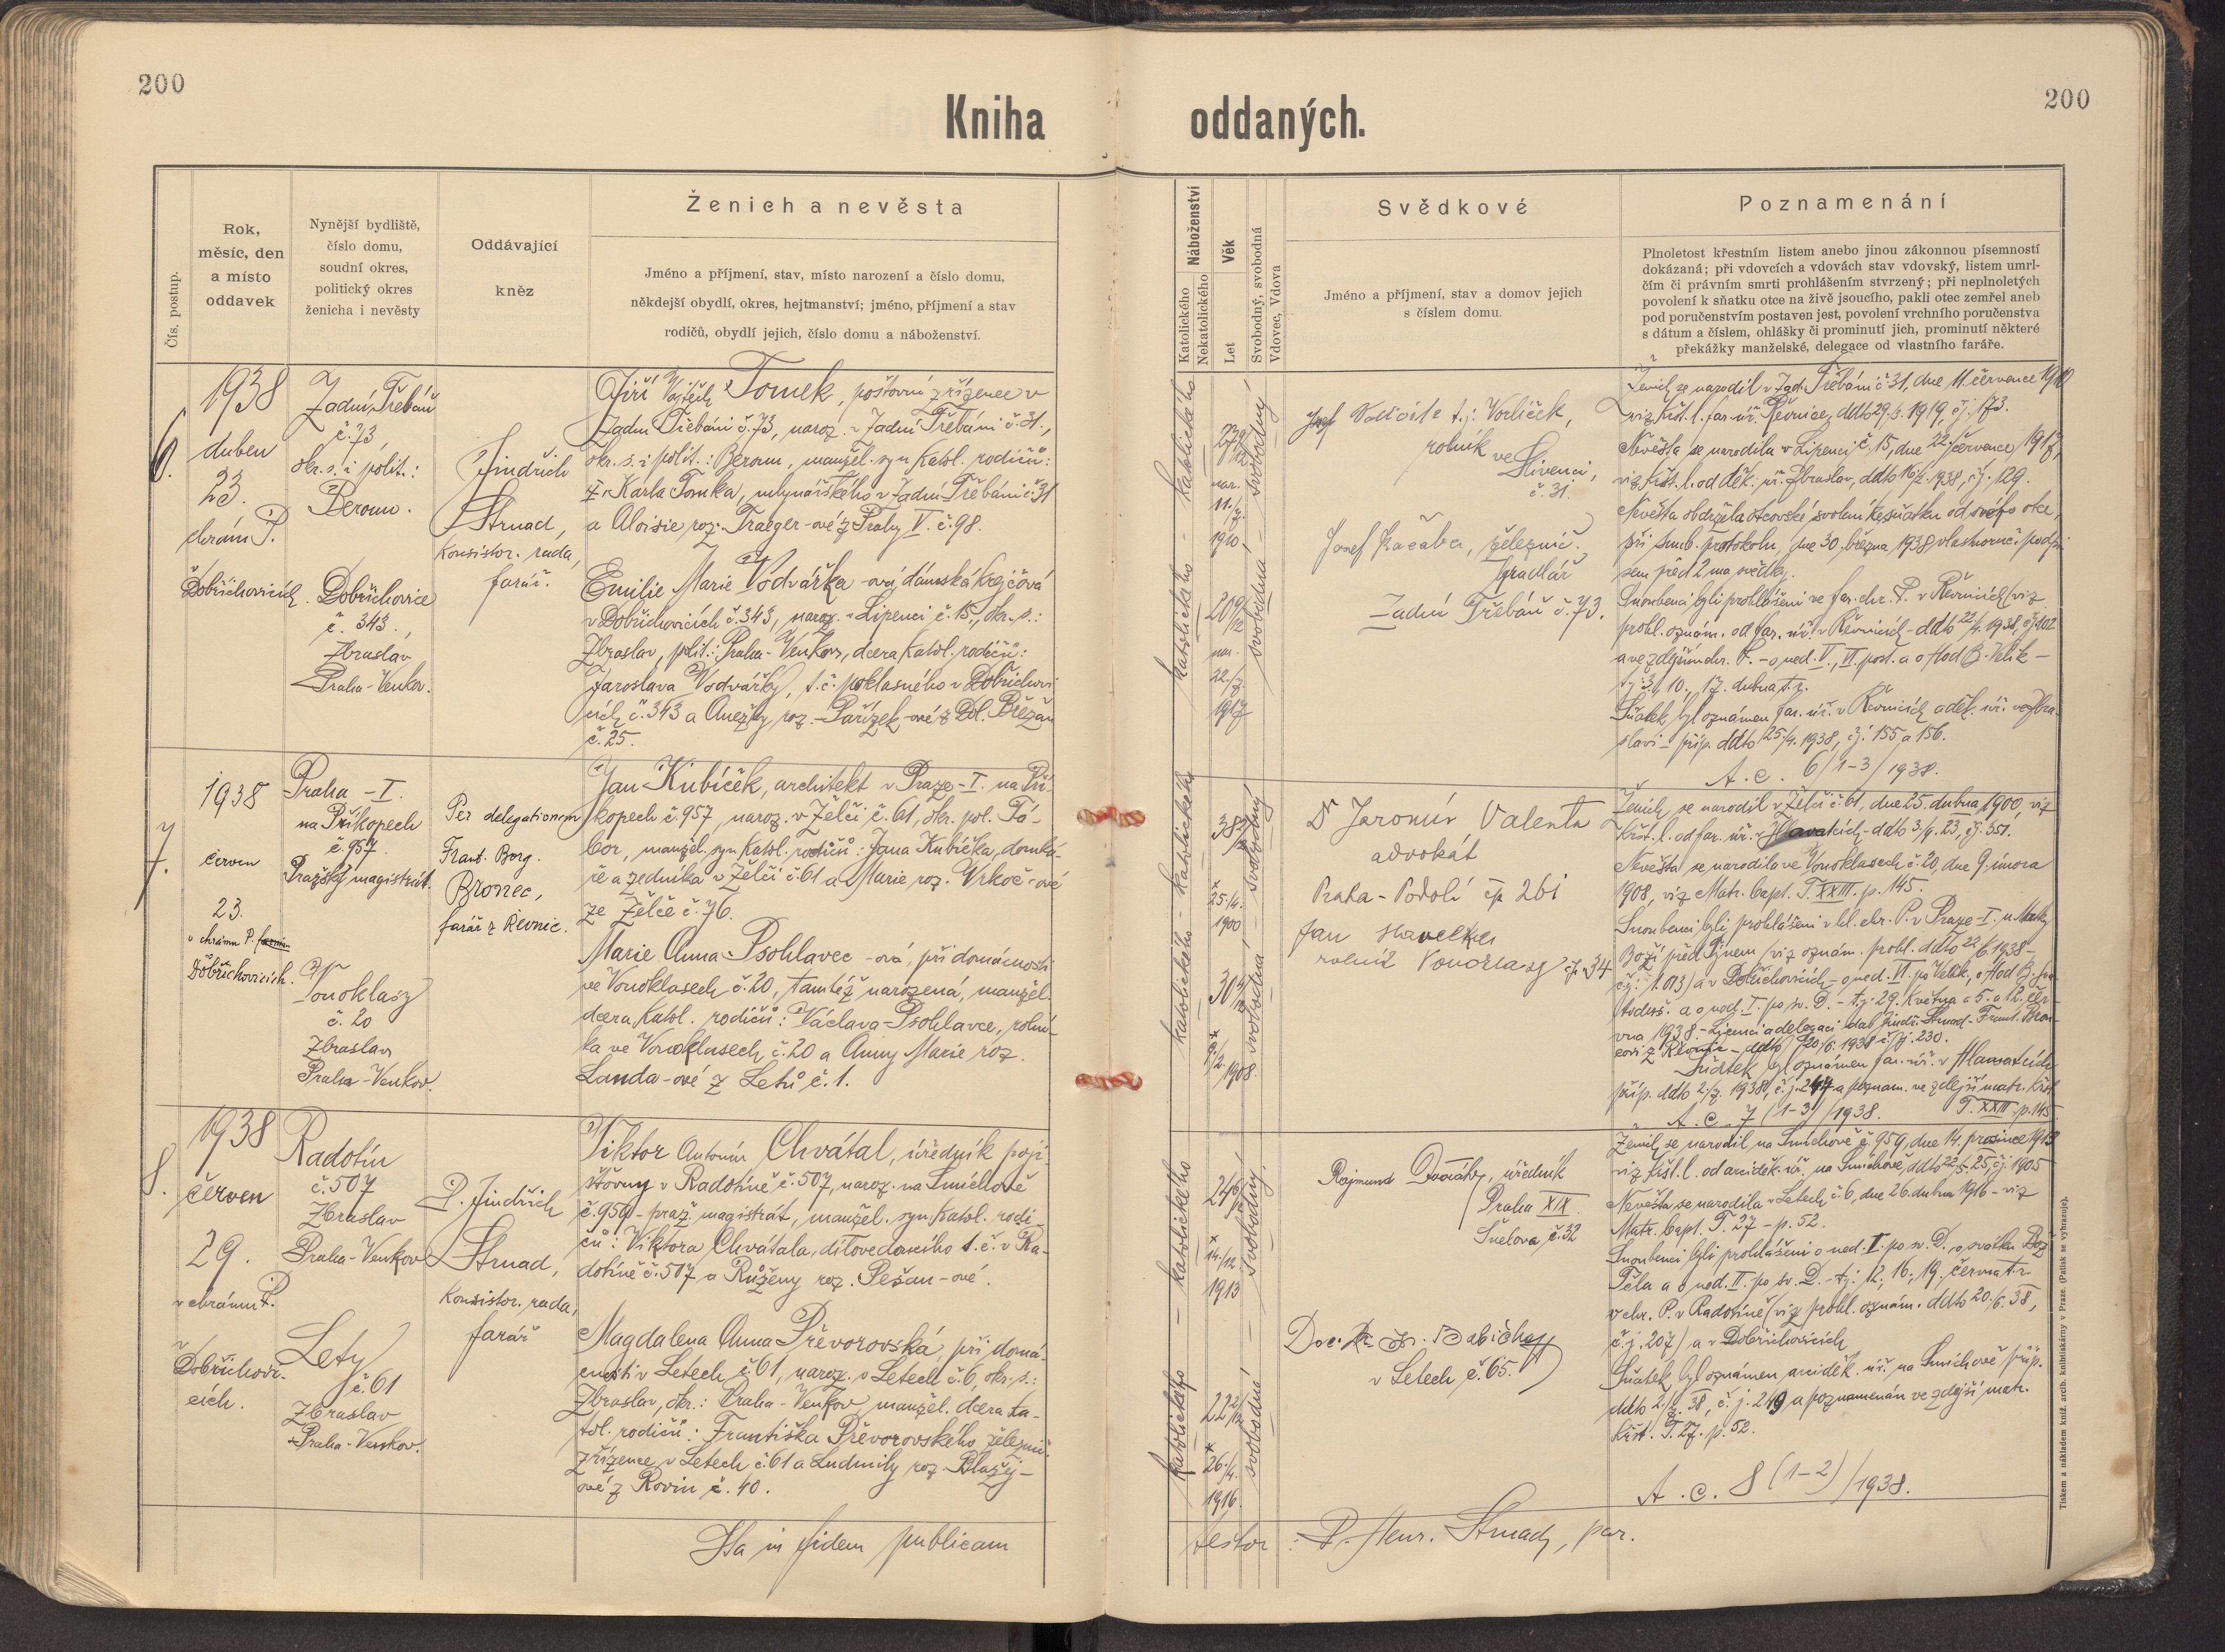 200
200
Kniha oddaných.
Čís. postup.
Rok,
měsíc, den
a místo
oddavek
Nynější bydliště,
číslo domu,
soudní okres,
politický okres
ženicha i nevěsty
Oddávající
kněz
Ženich a nevěsta
Jméno a příjmení, stav, místo narození a číslo domu,
někdejší obydlí, okres, hejtmanství; jméno, příjmení a stav
rodičů, obydlí jejich, číslo domu a náboženství.
Náboženství
Katolického
Nekatolického
Věk
Let
Svobodný, svobodná
Vdovec, Vdova
Svědkové
Jméno a příjmení, stav a domov jejich
s číslem domu.
Poznamenání
Plnoletost křestním listem anebo jinou zákonnou písemností
dokázaná; při vdovcích a vdovách stav vdovský, listem umrl-
čím či právním smrti prohlášením stvrzený; při neplnoletých
povolení k sňatku otce na živě jsoucího, pakli otec zemřel aneb
pod poručenstvím postaven jest, povolení vrchního poručenstva
s dátum a číslem, ohlášky či prominutí jich, prominutí některé
překážky manželské, delegace od vlastního faráře.
6.
1938
duben
23.
chrám P.
Dobřichovicích.
Zadní Třebáň
č. 73,
okr. s. i polit.:
Beroun.
Dobřichovice
č. 343.,
Zbraslav
Praha-Venkov.
Jindřich
Strnad,
konsistor. rada,
farář.
Jiří Vojtěch Tomek, poštovní zřízenec v
Zadní Třebáni č. 73, naroz. v Zadní Třebáni č. 31.,
okr. s. i polit.: Beroun, manžel. syn katol. rodičů:
Karla Tomka, mlynářského v Zadní Třebáni č. 31
a Aloisie roz. Traeger-ové z Prahy V. č. 98.
Emilie Marie Vodvářka-ová, dámská krejčová
v Dobřichovicích č. 343, naroz. v Lipenci č. 15., okr. s.:
Zbraslav, polit.: Praha-Venkov, dcera katol. rodičů:
Jaroslava Vodvářky, t. č. poklasného v Dobřichovi-
cích č. 343 a Anežky roz. Pařízek-ové z Dol. Břežan
č. 25.
katolického - katolického
nar.
11./7.
1910
22./7
1917
svobodná - svobodný
Josef Vorlíček t. j. Vorlíček,
rolník ve
Slivenci,
č. 31.
Josef Kačaba, železnič.
hradlář
Zadní Třebáň č. 73.
Ženich se narodil v Zad. Třebáni č. 31, dne 11. července 1910
viz křst. l. far. úř. Řevnice, ddto 29./3. 1919, čj. 173.
Nevěsta se narodila v Lipenci č. 15, dne 22. července 1917,
viz křst. l. od děk. úř. Zbraslav, ddto 16/2. 1938, čj. 129.
Nevěsta obdržela otcovské svolení ke sňatku od svého otce,
při snub. protokolu, dne 30. března 1938 vlastnoruč. podpi-
sem před 2 ma svědky.
Snoubenci byli prohlášeni ve far. chr. P. v Řevnicích (viz
prohl. oznám. od far. úř. v Řevnicích - ddto 22/4. 1938, čj. 102
a ve zdejším chr. P. - o ned. V., VI. post. a o Hod B. Velik -
t. j. 3., 10., 17. dubna t. r.
Sňatek byl oznámen far. úř. v Řevnicích a děk. úř. ve Zbra-
slavi - příp. ddto 25/4. 1938, čj. 155 a 156.
A. c. 6/1-3/1938.
7.
1938
červen
23.
v chrámu P.
Dobřichovicích.
Praha - I.
na Příkopech
č. 957
Pražský magistrát.
Vonoklasy
č. 20
Zbraslav
Praha-Venkov.
Per delegationem
Frant. Borg.
Bronec,
farář z Řevnic.
Jan Kubíček, architekt v Praze-I. na Pří-
kopech č. 957, naroz. v Želči č. 61, okr. pol. Tá-
bor, manžel. syn katol. rodičů: Jana Kubíčka, domká-
ře a zedníka v Želči č. 61 a Marie roz. Vrkoč-ové
ze Želče č. 76.
Marie Anna Psohlavec-ová, při domácnosti
ve Vonoklasech č. 20, tamtéž narozená, manžel.
dcera katol. rodičů: Václava Psohlavce, rolní-
ka ve Vonoklasech č. 20 a Anny Marie roz.
Landa-ové z Letů č. 1.
katolického - katolického
38
* 25./4.
1900
30
* 9./2.
1908.
svobodná - svobodný
Dr Jaromír Valenta
advokát
Praha-Podolí čp 261
Jan Havelka
rolník Vonoklasy čp 34
Ženich se narodil v Želči č. 61, dne 25. dubna 1900, viz
křst. l. od far. úř. v Hlavatcích - ddto 3/9. 23, čj. 351.
Nevěsta se narodila ve Vonoklasech č. 20, dne 9. února
1908, viz Matr. bapt. T. XXIII. p. 145.
Snoubenci byli prohlášeni v hl. chr. P. v Praze-I. u Matky
Boží před Týnem (viz oznám. prohl. ddto 22/6. 1938 -
čj. 1.013) a v Dobřichovicích - o ned. VI. po Velik., o Hod B. sv-
toduš. a o ned. I. po sv. D. - t. j. 29. května a 5. a 12. čer-
vna 1938. - Licenci a delegaci dal Jindř. Strnad - Frant. Bron-
covi z Řevnic - ddto 20/6. 1938 čj. 230.
Sňatek byl oznámen far. úř. v Hlavatcích
příp. ddto 2./7. 1938, č. j. 247 a poznam. ve zdejší matr. křst.
T. XXIII. p. 145
A. c. 7 (1-3)/1938.
8.
1938
červen
29.
v chrámu P.
Dobřichovi-
cích.
Radotín
č. 507
Zbraslav
Praha-Venkov
Lety
č. 61
Zbraslav
Praha-Venkov.
P. Jindřich
Strnad,
konsistor. rada,
farář
Viktor Antonín Chvátal, úředník poji-
šťovny v Radotíně č. 507, naroz. na Smíchově
č. 959 - praž. magistrát, manžel. syn katol. rodi-
čů: Viktora Chvátala, dílovedoucího t. č. v Ra-
dotíně č. 507 a Růženy roz. Pešan-ové.
Magdalena Anna Převorovská, při domá-
cnosti v Letech č. 61, naroz. v Letech č. 6, okr. s.:
Zbraslav, okr.: Praha-Venkov, manžel. dcera ka-
tol. rodičů: Františka Převorovského, železnič.
zřízence v Letech č. 61 a Ludmily roz. Blažej-
ové z Rovin č. 40.
katolického - katolického
24
* 14./12.
1913
22
* 26./4.
1916.
svobodná - svobodný
Rajmund Dvořák, úředník
Praha XIX.
č. 32
v Letech č. 65.
Ženich se narodil na Smíchově č. 959, dne 14. prosince 1913
viz křst. l. od arciděk. úř. na Smíchově, ddto 22/5. 25, čj. 1405
Nevěsta se narodila v Letech č. 6, dne 26. dubna 1916 - viz
Matr. bapt. T. 27 - p. 52.
Snoubenci byli prohlášeni o ned. I. po sv. D., o svátku Bož
Těla a o ned. II. po sv. D. - t. j. 12., 16., 19. června t. r.
v chr. P. v Radotíně (viz prohl. oznám. ddto 20./6. 38,
č. j. 207) a v Dobřichovicích
Sňatek byl oznámen arciděk. úř. na Smíchově příp.
ddto 2./7. 38, č. j. 249 a poznamenán ve zdejší matr.
křst. T. 27. p. 52.
A. c. 8 (1-2)/1938.
Ita in fidem publicam
testor: P. Henr. Strnad, par.
Tiskem a nákladem kníž. arcib. knihtiskárny v Praze. (Patisk se vyhrazuje).